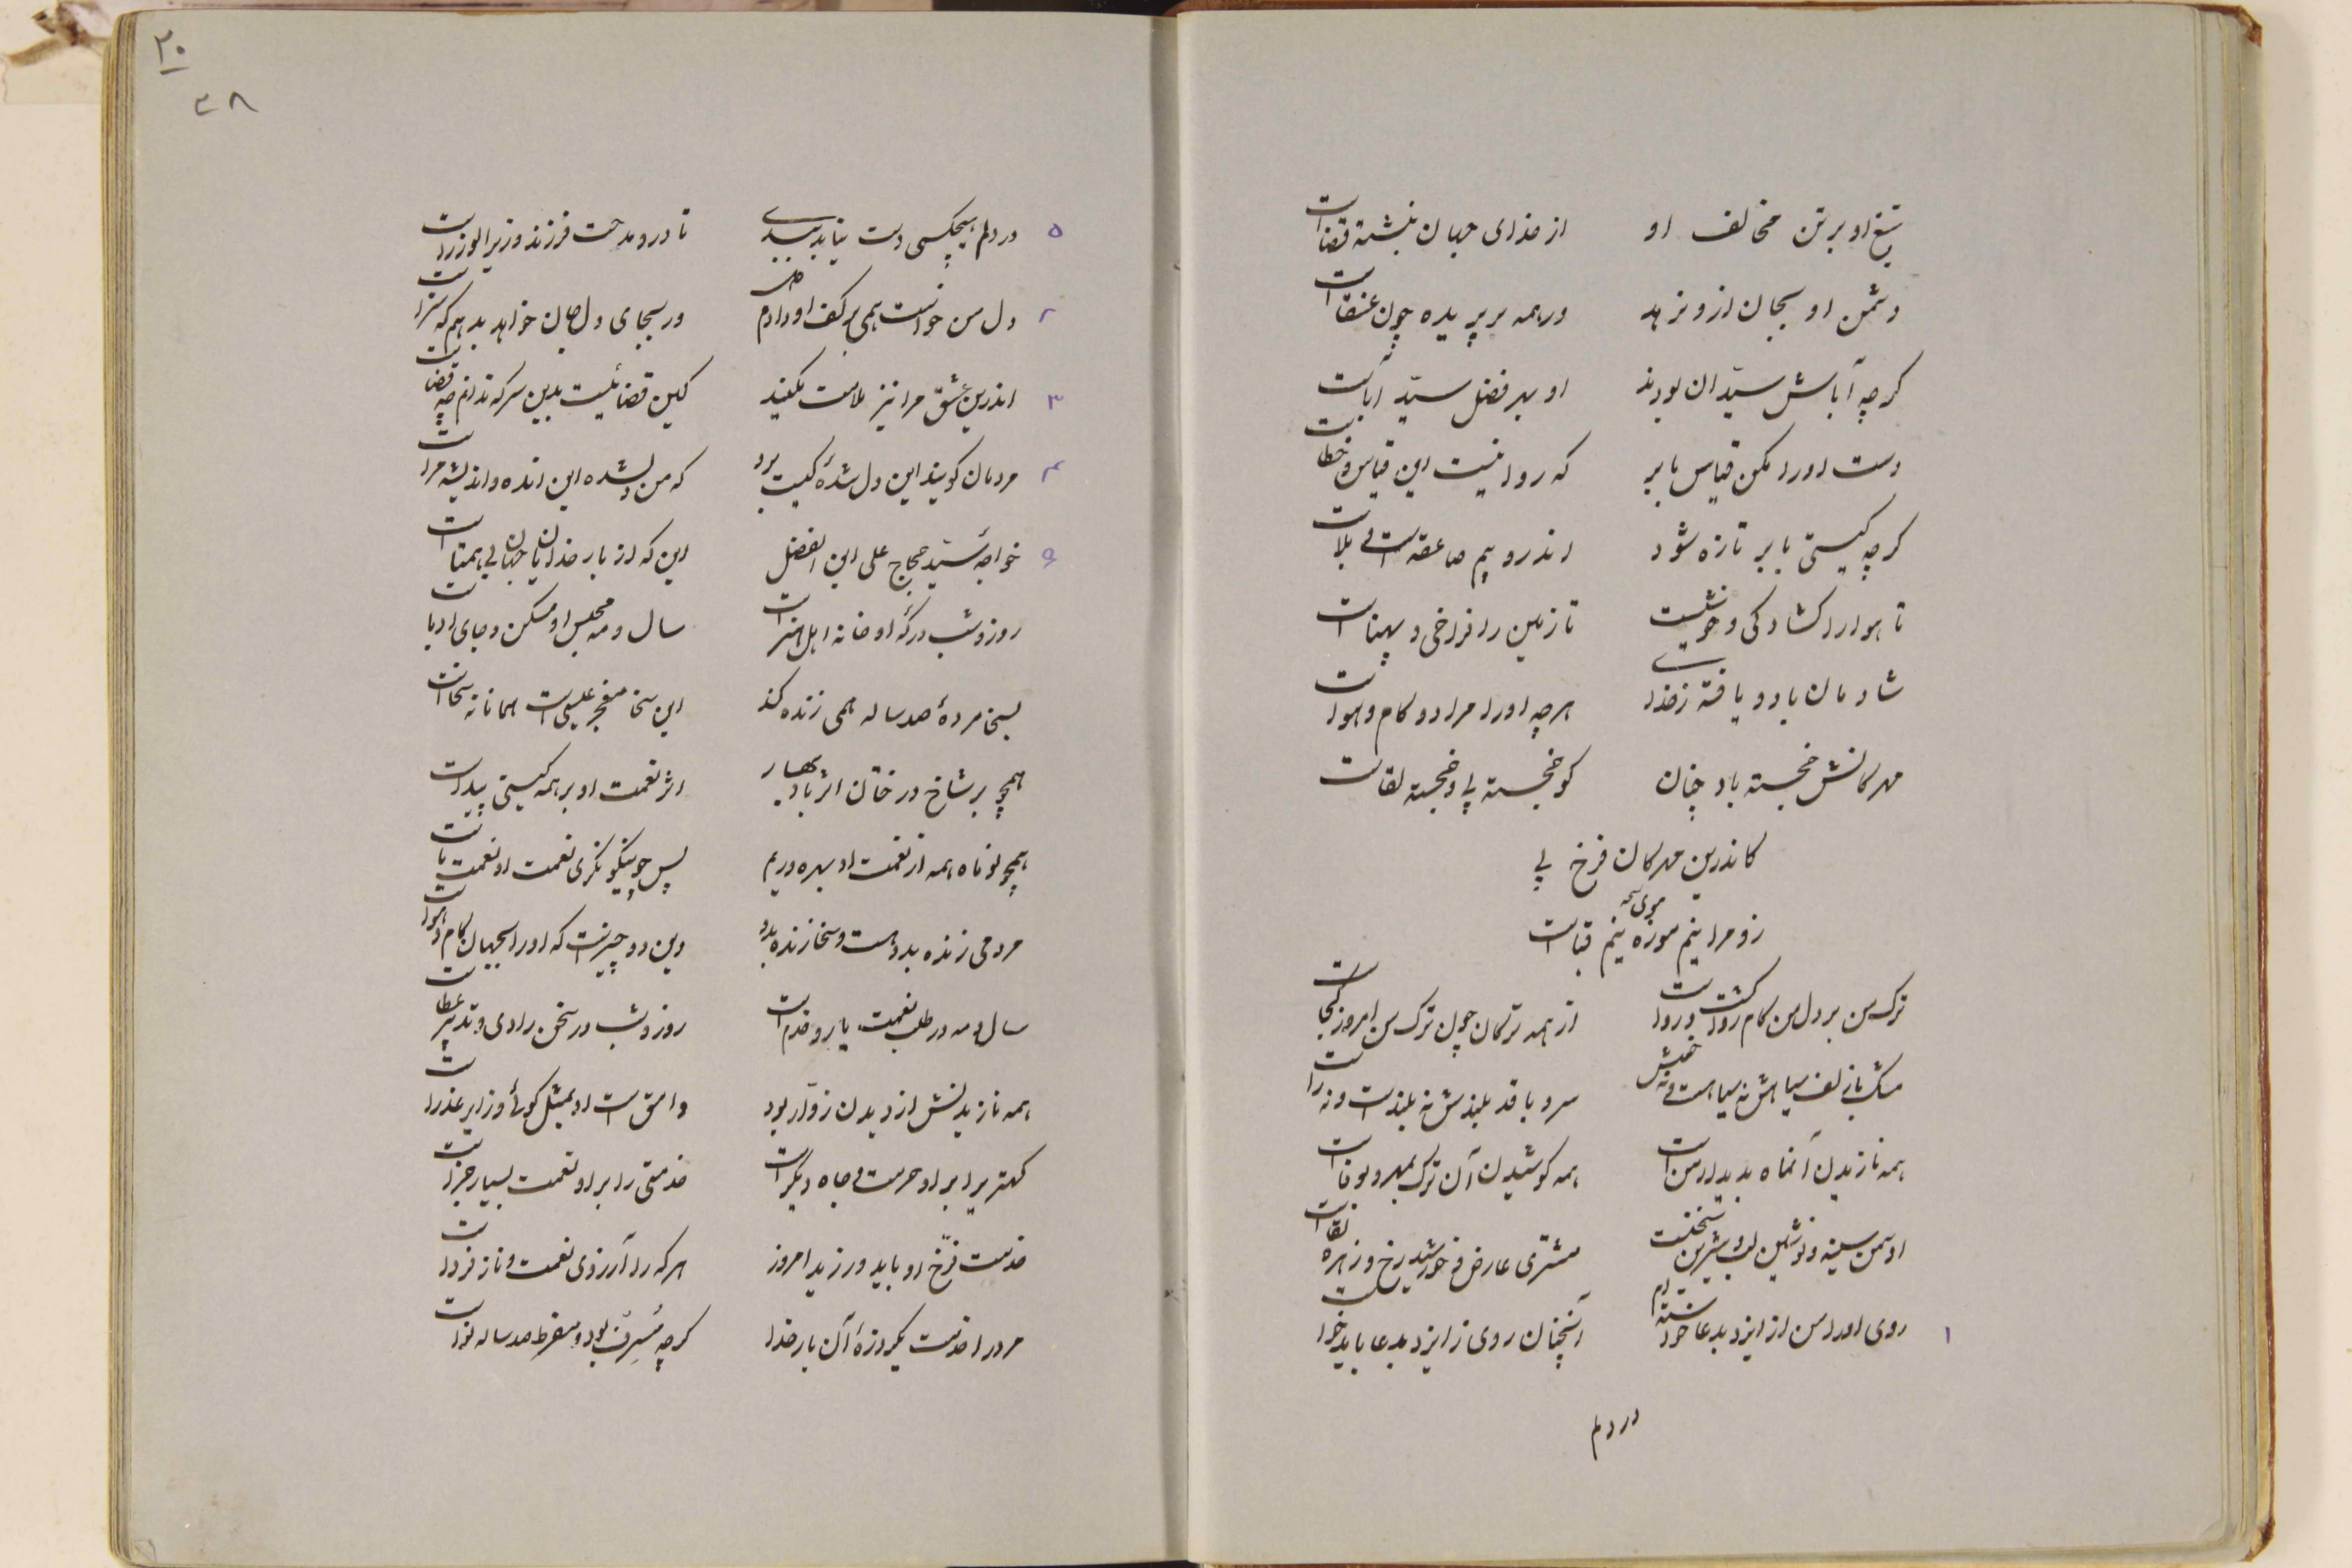 تیغ او بر تن مخالف او از خدای جهان نبشته قضاست
دشمن او بجان ازو نرهد ور همه بر پریده چون عنقاست
گرچه آباش سیّدان بودند او بهر فضل سیّد آباست
دست او را مکن قیاس بابر که روا نیست این قیاس و خطاست
گرچه گیتی بابر تازه شود اندرو بیم صاعقه است و بلاست
تا هوا را گشادگی و خوشیست تا زمین را فراخی و پهناست
شادمان باد و یافته ز خدای هر چه او را مراد و کام و هواست
مهرگانش خجسته باد چنان کو خجسته پی و خجسته لقاست
کاندرین مهرگان فرخ پی
زو مرا نیم موزه نیم قباست
ترک من بر دل من کام روا گشت و رواست از همه ترکان چون ترک من امروز کجاست
مشک با زلف سیاهش نه سیاهست و نه خوش سرو با قد بلندش نه بلندست و نه راست
همه نازیدن آنماه بدیدار منست همه کوشیدن آن ترک بمهر و بوفاست
او سمن سینه و نوشین لب و شیرین سخنست مشتری عارض و خورشید رخ و زهره لقاست
۱ روی او را من از ایزد بدعا خواسته ام آنچنان روی ز ایزد بدعا باید خواست
در دلم
۲۰
۳۸
۵ در دلم هیچکسی دست نیابد ببدی تا درو مدحت فرزند وزیر الوزراست
۲ دل من خواست همی بر کف او دادم دل ور بجای دل جان خواهد بدهم که سزاست
۳ اندرین عشق مرا نیز ملامت مکنید کاین قضائیست بدین سر که ندانم چه قضاست
۴ مردمان گویند این دل شده کیست برو که من دلشده این انده و اندیشه مراست
۵ خواجه سیّد حجاج علی ابن الفضل این که از بار خدایان جهان بی همتاست
روز و شب درگه او خانه اهل هنرست سال و مه مجلس او مسکن و جای ادباست
بسخا مرده صد ساله همی زنده کند این سخا معجز عیسی است همانا نه سخاست
همچو بر شاخ درختان اثر باد بهار اثر نعمت او بر همه گیتی پیداست
همچو نو ماه همه از نعمت او بهره وریم پس چو نیکو نگری نعمت او نعمت ماست
مردمی زنده بدوست و سخا زنده بدو وین دو چیزست که او را بجهان کام و هواست
سال و مه در طلب نعمت یار و خدم است روز و شب در سخن رادی و تدبیر عطاست
همه نازیدنش از دیدن زوّار بود وامق است او بمثل گوئی و زایر عذراست
کهتریرا بر او حرمت و جاه دگرست خدمتی را بر او نعمت بسیار جزاست
خدمت فرّخ او باید ورزید امروز هر که را آرزوی نعمت و ناز فرداست
مرد را خدمت یکروزه آن بار خدای گرچه مُسرِف بود و مفرط صد ساله نواست